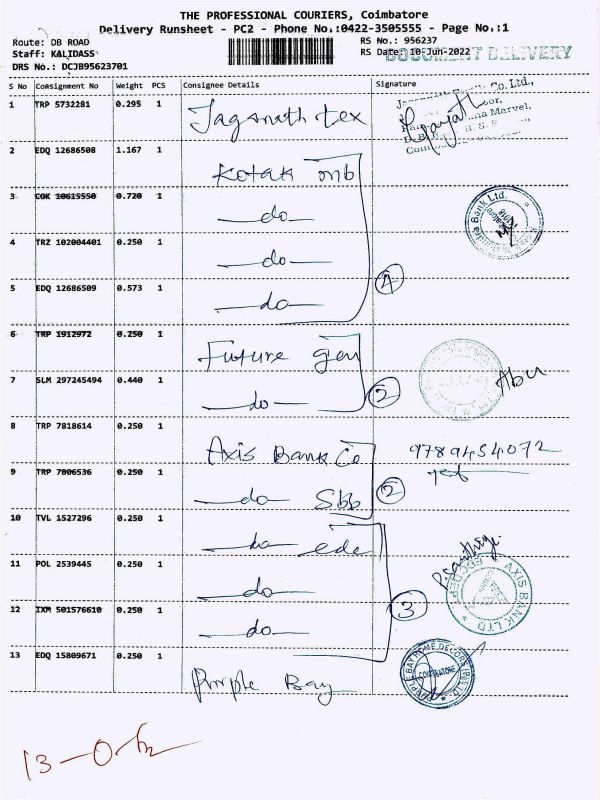 THE PROFESSIONAL COURIERS, Coimbatore
Delivery Runsheet - PC2 - Phone No.:0422-3505555 - Page No.:1
Route: DB ROAD RS No.: 956237
Staff: KALIDASS RS Date: 10-Jun-2022
DOCUMENT DELIVERY
DRS No.: DCJB95623701
S No Consignment No Weight PCS Consignee Details Signature
1 TRP 5732281 0.295 1 Jaganath tex
Co. Ltd.,
Marvel,
2 EDQ 12686508 1.167 1 Kotak mb
3 COK 10615550 0.720 1 do
Bank Ltd.
4 TRZ 102004401 0.250 1 do
4
5 EDQ 12686509 0.573 1 do
6 TRP 1912972 0.250 1 Future gen
7 SLM 297245494 0.440 1 do
2
Abu
8 TRP 7818614 0.250 1 Axis Bank Co
9789454072
9 TRP 7806536 0.250 1 do Sbb
2
10 TVL 1527296 0.250 1 do ede
11 POL 2539445 0.250 1 do
AXIS BANK LTD
12 IXM 501576610 0.250 1 do
3
13 EDQ 15809671 0.250 1 Purple Bay
PURPLE BAY HOME DECORS (P) LTD
COIMBATORE
13-0-12